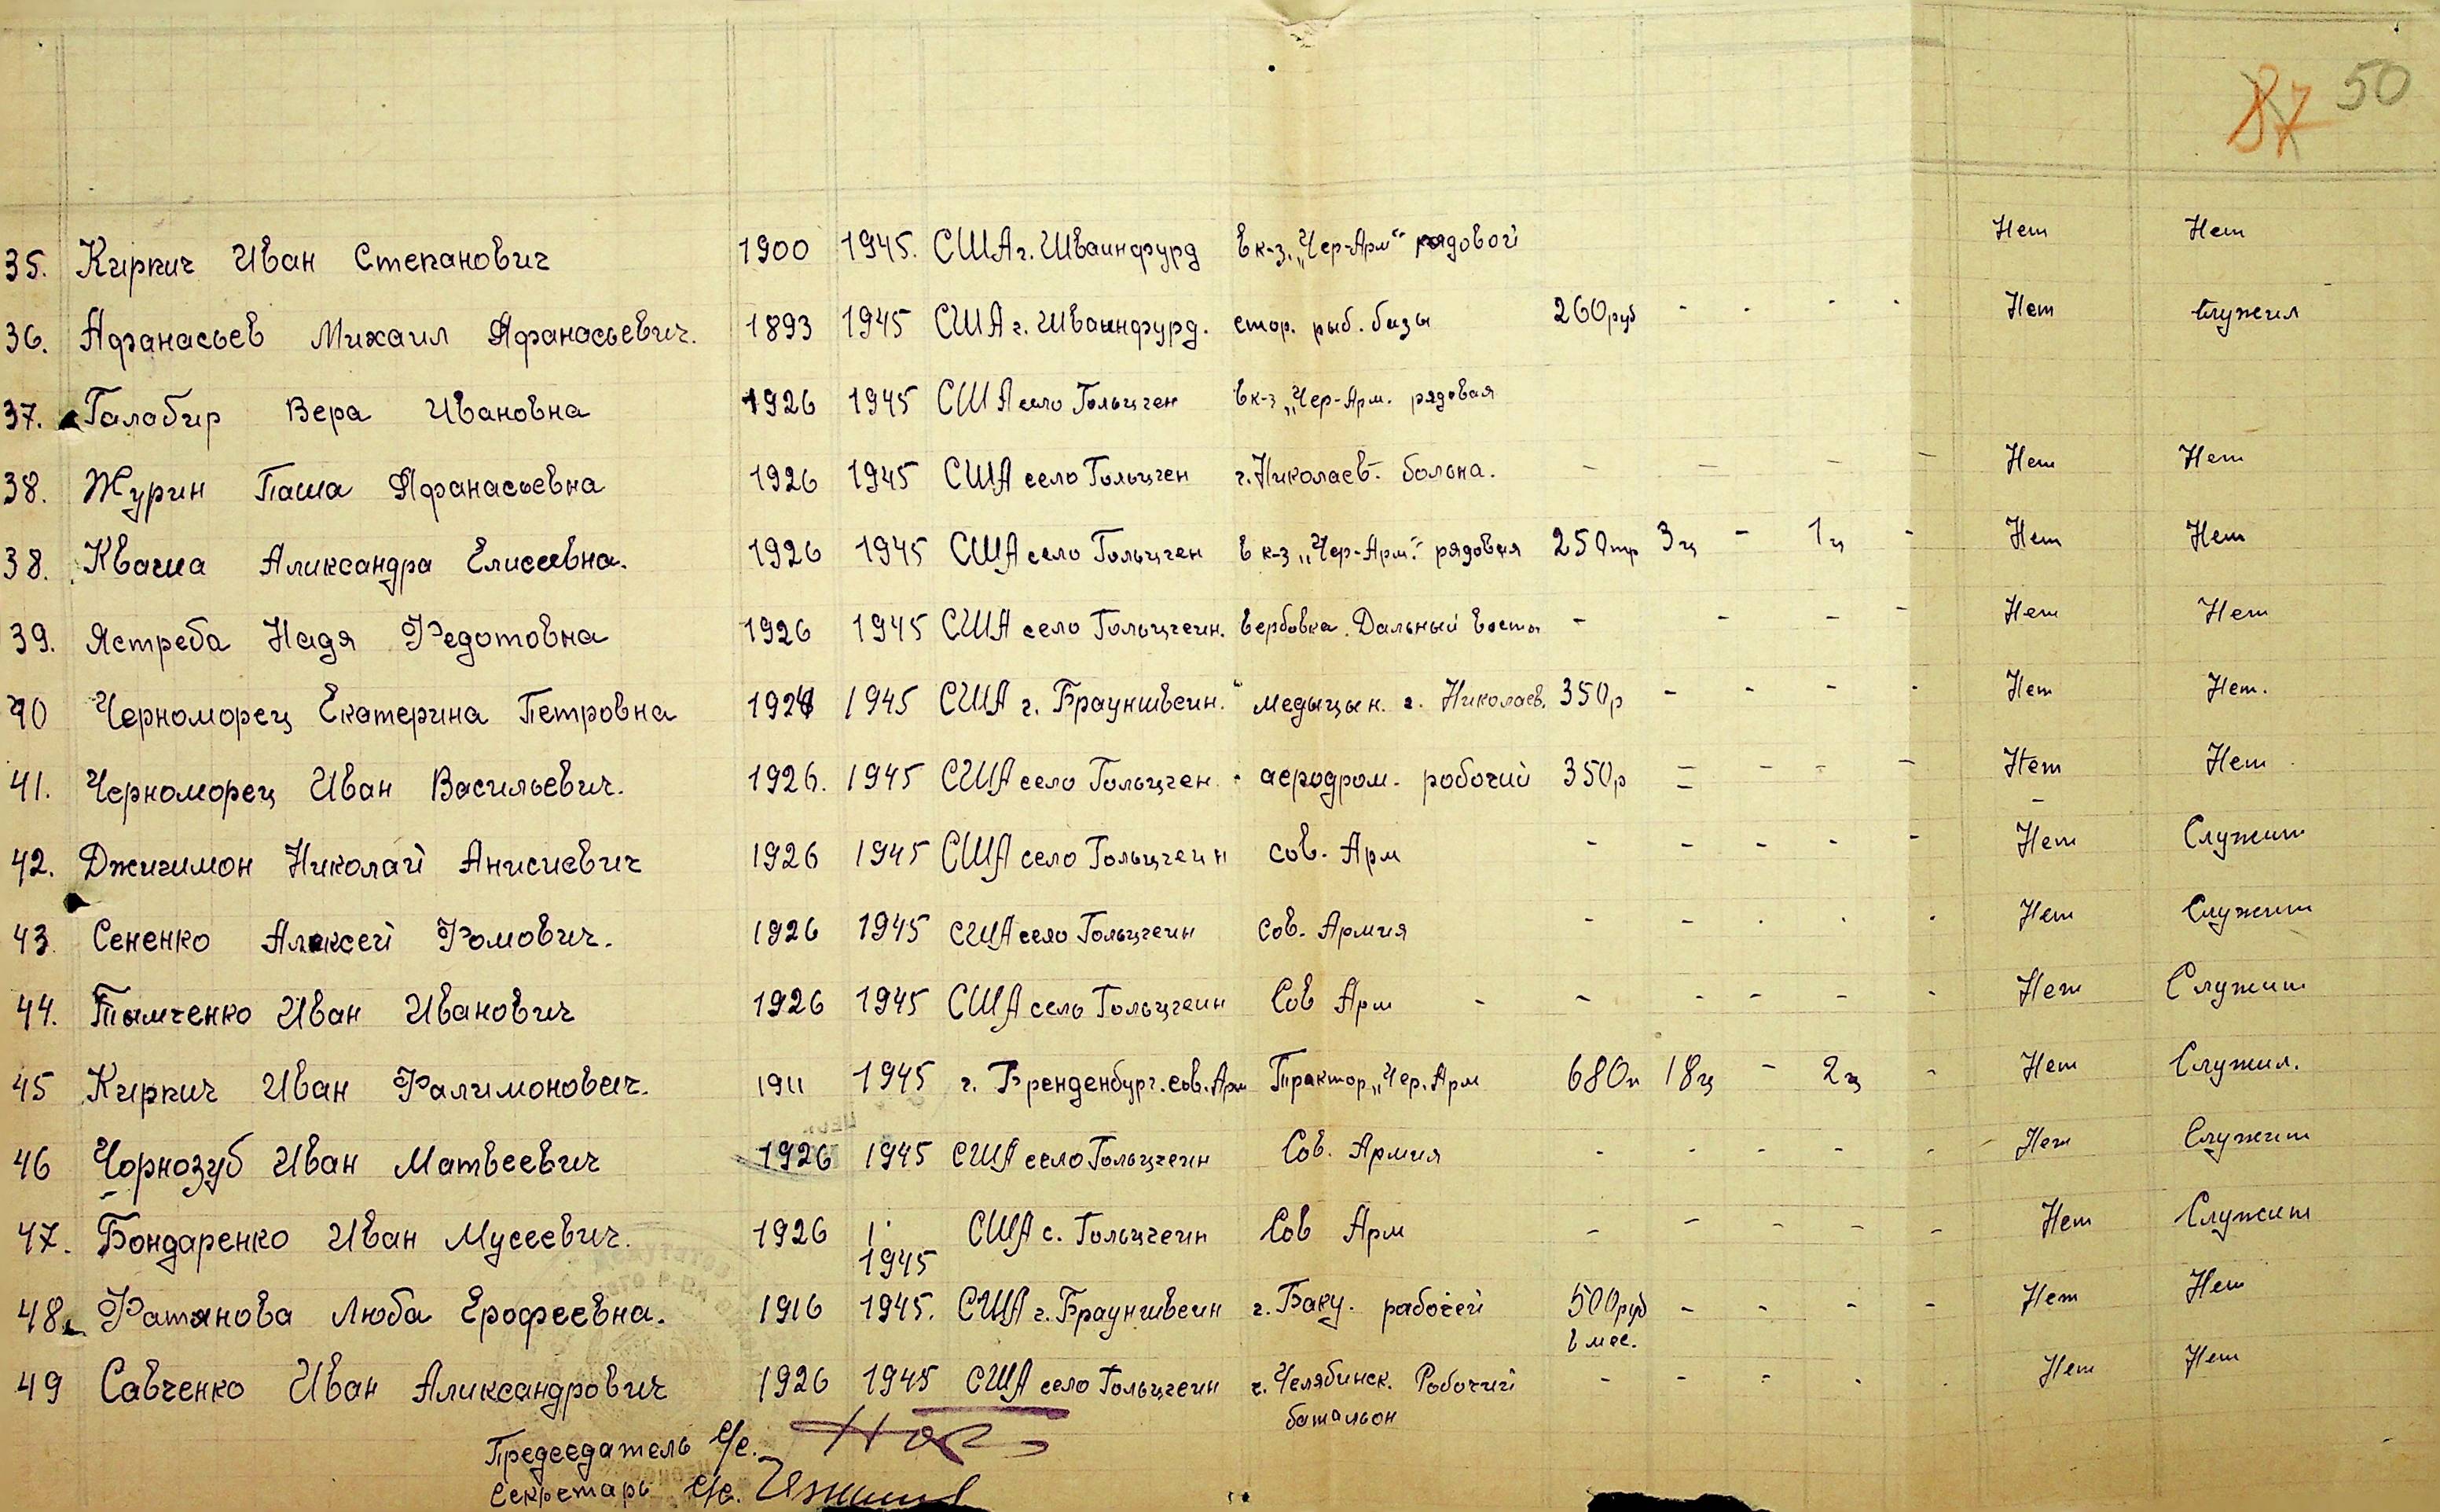 87 50
35. Кирпич Иван Степанович 1900 1945. США г. Шваинфурд в к-з. „Чер-Арм" рядовой Нет Нет
36. Афанасьев Михаил Афанасьевич. 1893 1945 США г. Шваинфурд. стор. рыб. базы 260 руб - - - - Нет Служил
37. Галабир Вера Ивановна 1926 1945 США село Гольцген в к-з „Чер-Арм. рядовая
38. Журин Паша Афанасьевна 1926 1945 США село Гольцген г. Николаев - больна. - - - - Нет Нет
38. Кваша Александра Елисеевна. 1926 1945 США село Гольцген в к-з „Чер-Арм." рядовая 250 тр 3ц - 1ц - Нет Нет
39. Ястреба Надя Федотовна 1926 1945 США село Гольцгеин. вербовка. Дальный Восток - - - - Нет Нет
40 Черноморец Екатерина Петровна 1924 1945 США г. Брауншвеин. медыцын. г. Николаев. 350р - - - - Нет Нет.
41. Черноморец Иван Васильевич. 1926. 1945 США село Гольцген. - аеродром. робочий 350р = - - - Нет Нет
42. Джигимон Николай Анисиевич 1926 1945 США село Гольцгеин сов. Арм - - - - - Нет Служит
43. Сененко Алексей Фомович. 1926 1945 США село Гольцгеин сов. Армия - - - - - Нет Служит
44. Тымченко Иван Иванович 1926 1945 США село Гольцгеин Сов Арм - - - - - - Нет Служит
45 Кирпич Иван Фалимонович. 1911 1945 г. Бренденбург. сов. Арм Трактор „Чер. Арм 680 18ц - 2ц - Нет Служил.
46 Чорнозуб Иван Матвеевич 1926 1945 США село Гольцгеин Сов. Армия - - - - - Нет Служит
47. Бондаренко Иван Мусеевич. 1926 1945 США с. Гольцгеин Сов Арм - - - - - Нет Служит
48. Фатянова Люба Ерофеевна. 1916 1945. США г. Брауншвеин г. Баку. рабочей 500 руб - - - - Нет Нет
в мес.
49 Савченко Иван Александрович 1926 1945 США село Гольцгеин г. Челябинск. Робочий - - - - - Нет Нет
батальон
Председатель с/с.
Секретарь с/с.